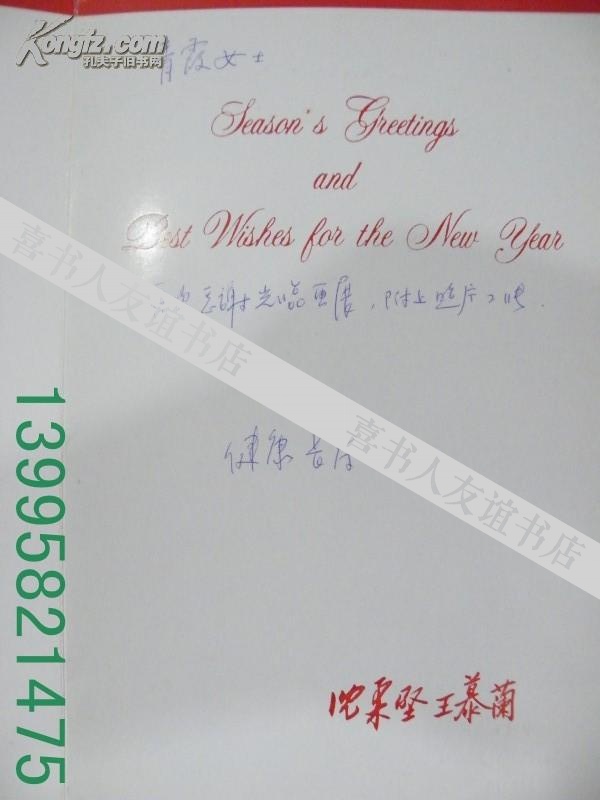 Kongfz.com
孔夫子旧书网
青霞女士
Season's Greetings
and
Best Wishes for the New Year
谢光临画展，附上照片2帧．
健康
沈 坚 王慕兰
喜书人友谊书店
喜书人友谊书店
13995821475